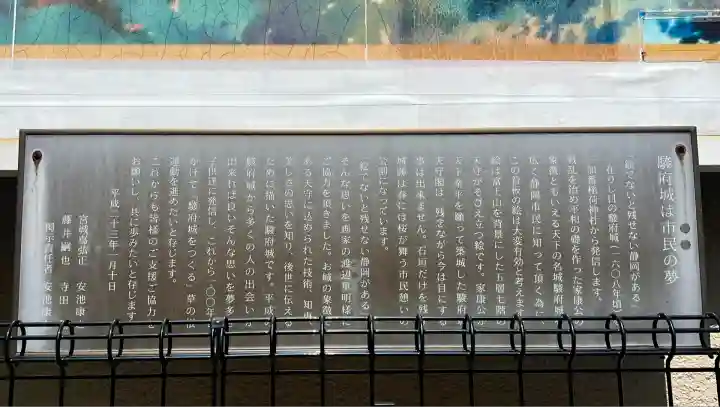 駿府城は市民の夢
「観でないと残せない静岡がある」
在りし日の駿府城(一六〇八年頃)
加番稲荷神社から発信します。
戦乱を治め平和の礎を作った家康公の
象徴ともいえる天下の名城駿府城
広く静岡市民に知って頂く為に、
この一枚の絵は大変有効と考えます
絵は富士山を背景にした五層七階の
天守がそびえ立つ絵です。家康公が
天下泰平を願って築城した駿府
天守閣は、残念ながら今は目にする
事は出来ません。石垣だけを残
城跡は春には桜が舞う市民憩いの
公園になっています。
「絵でないと残せない静岡がある」
そんな思いを画家の渡辺重明様に
ご協力を頂きました。お城の象徴で
ある天守に込められた技術、知恵
美しさの思いを知り、後世に伝える
ために描いた駿府城です。平成の
駿府城から多くの人の出会いが
出来れば良いそんな思いを夢多
子供達に発信し、これから一〇〇年
かけて「駿府城をつくる」草の根
運動を進めたいと存じます。
これからも皆様のご支援ご協力を
お願いし、共に歩みたいと存じます
平成二十三年一月十日
宮城嶋弘正 安池康
藤井嗣也 寺田
掲示責任者 安池康